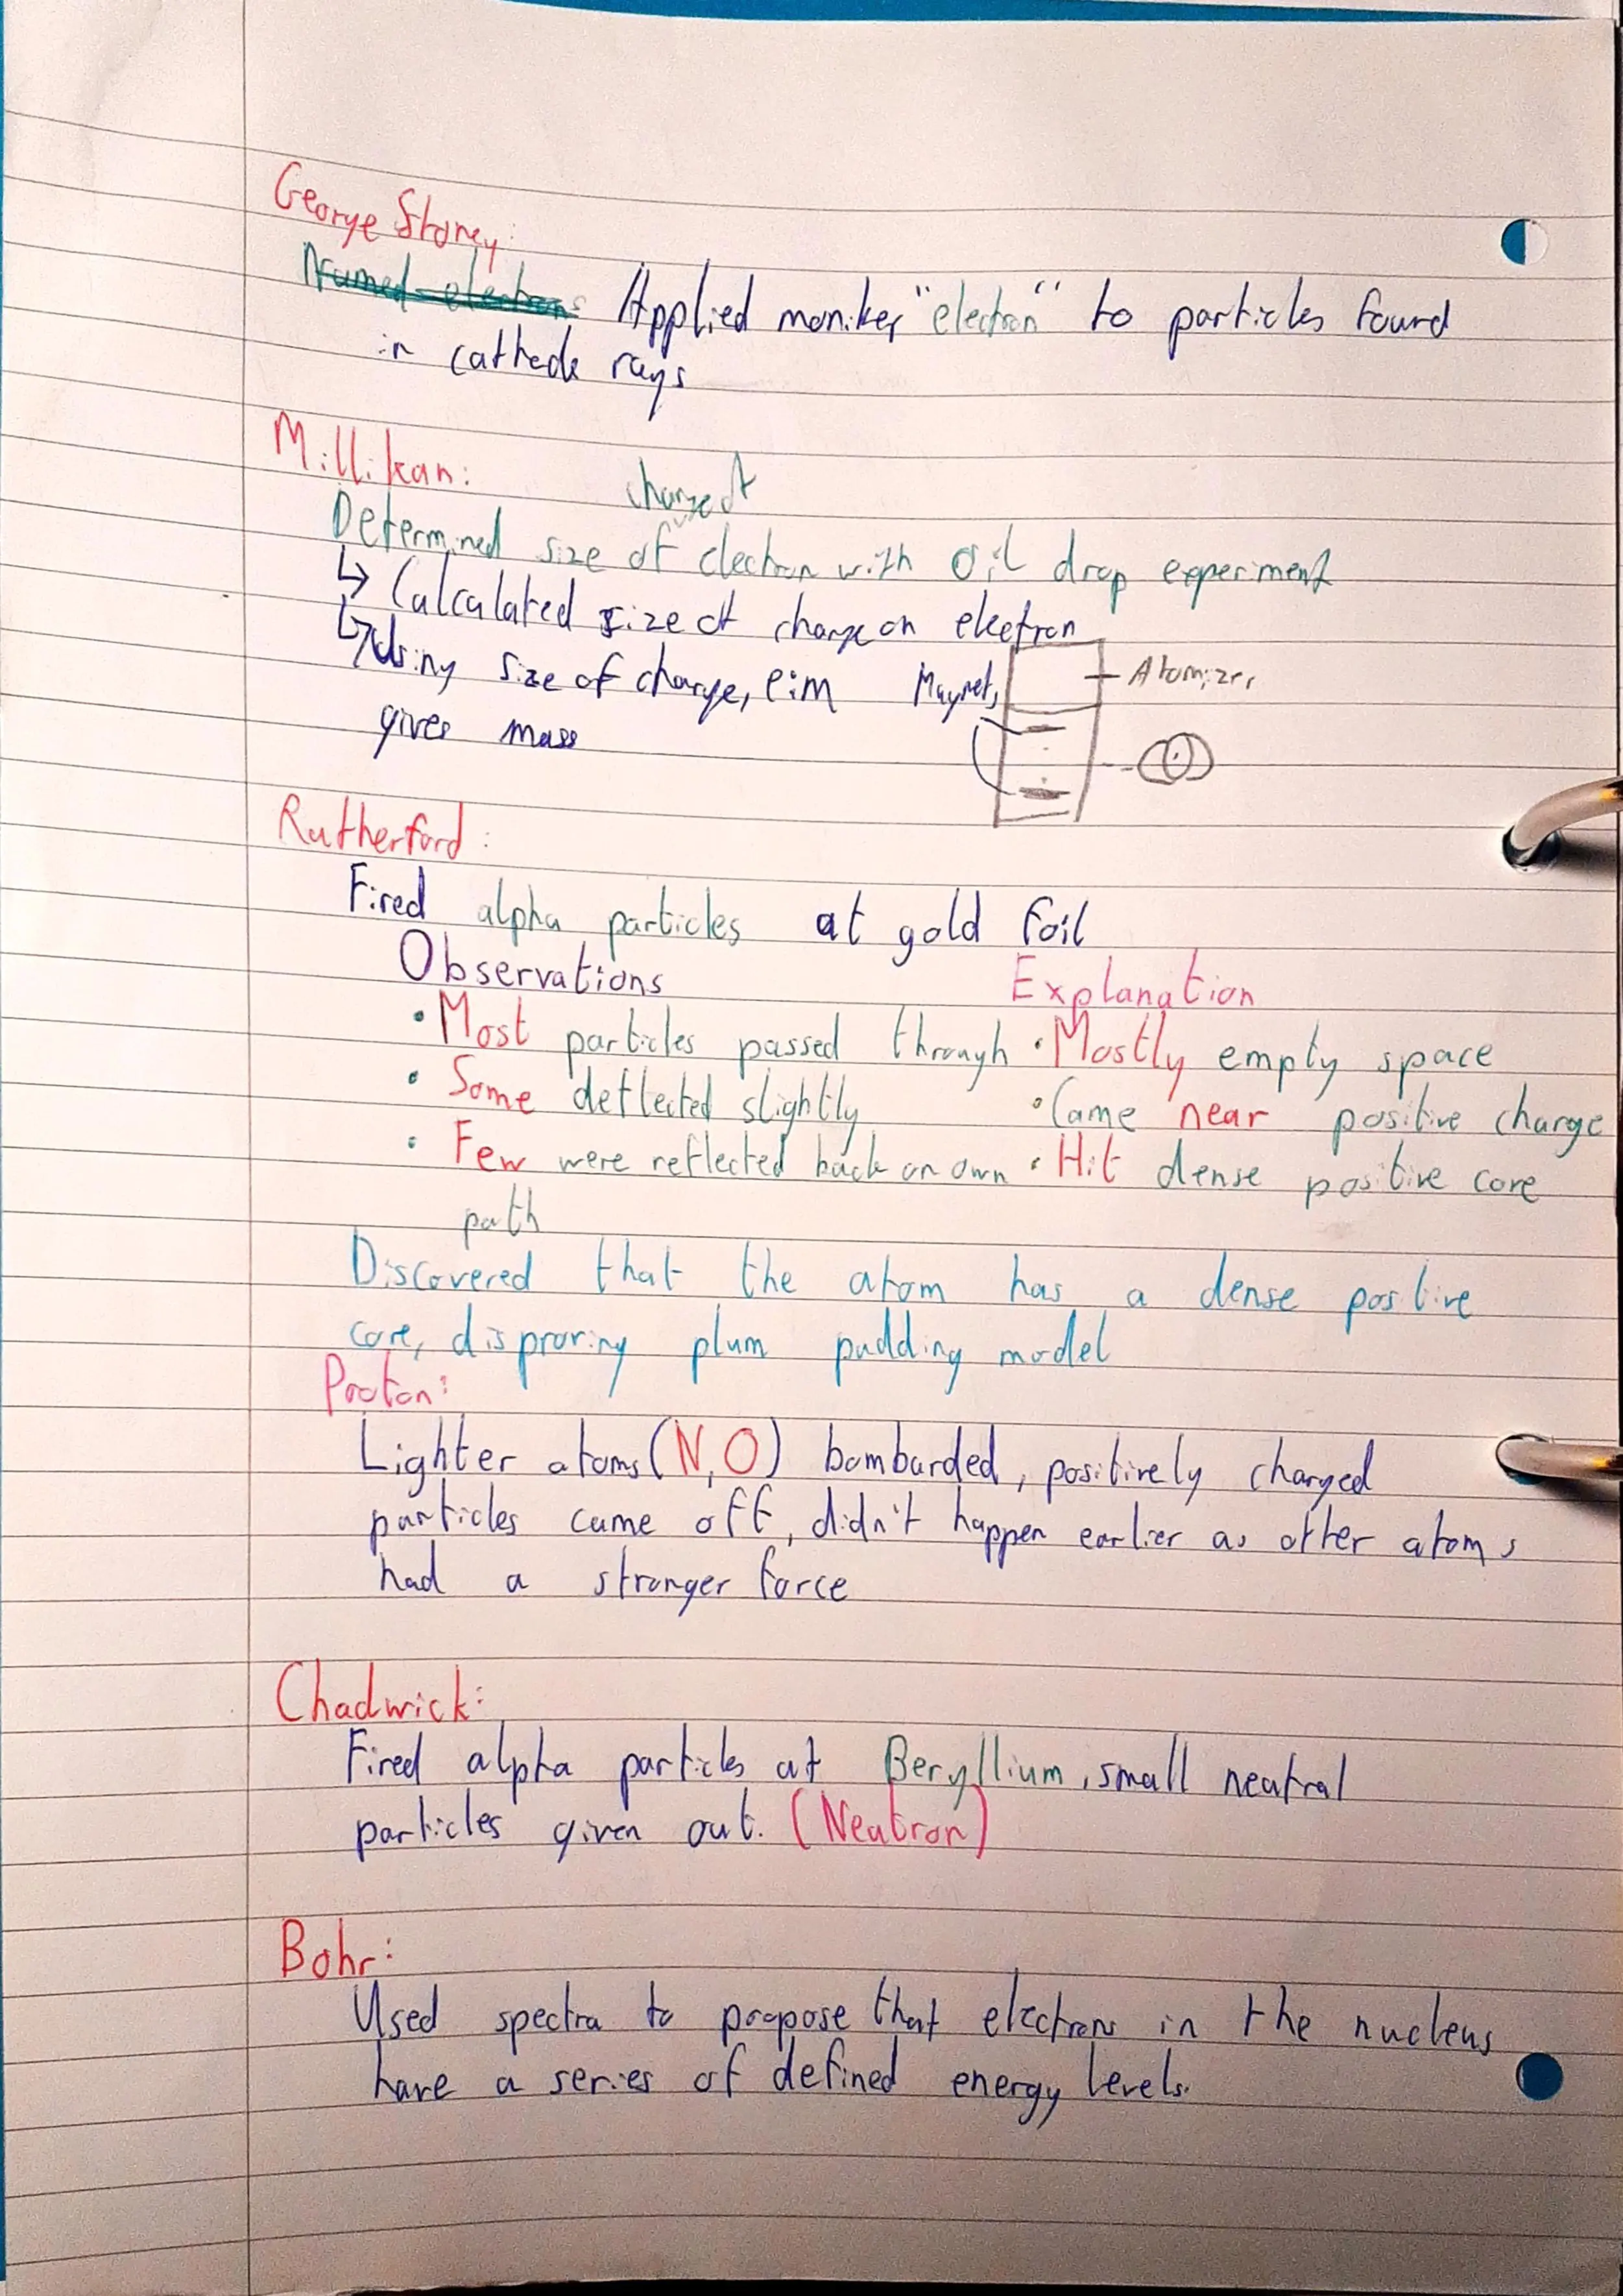 George Stoney:
Named electrons Applied moniker "electron" to particles found
in cathode rays
Millikan:
charge of
Determined size of electron with oil drop experiment
↳ Calculated size of charge on electron
↳ Using size of charge, e:m
gives mass
Magnets
Atomizer
Rutherford:
Fired alpha particles at gold foil
Observations Explanation
• Most particles passed through • Mostly empty space
• Some deflected slightly • Came near positive charge
• Few were reflected back on own • Hit dense positive core
path
Discovered that the atom has a dense positive
core, disproving plum pudding model
Proton:
Lighter atoms (N, O) bombarded, positively charged
particles came off, didn't happen earlier as other atoms
had a stronger force
Chadwick:
Fired alpha particles at Beryllium, small neutral
particles given out. (Neutron)
Bohr:
Used spectra to propose that electrons in the nucleus
have a series of defined energy levels.